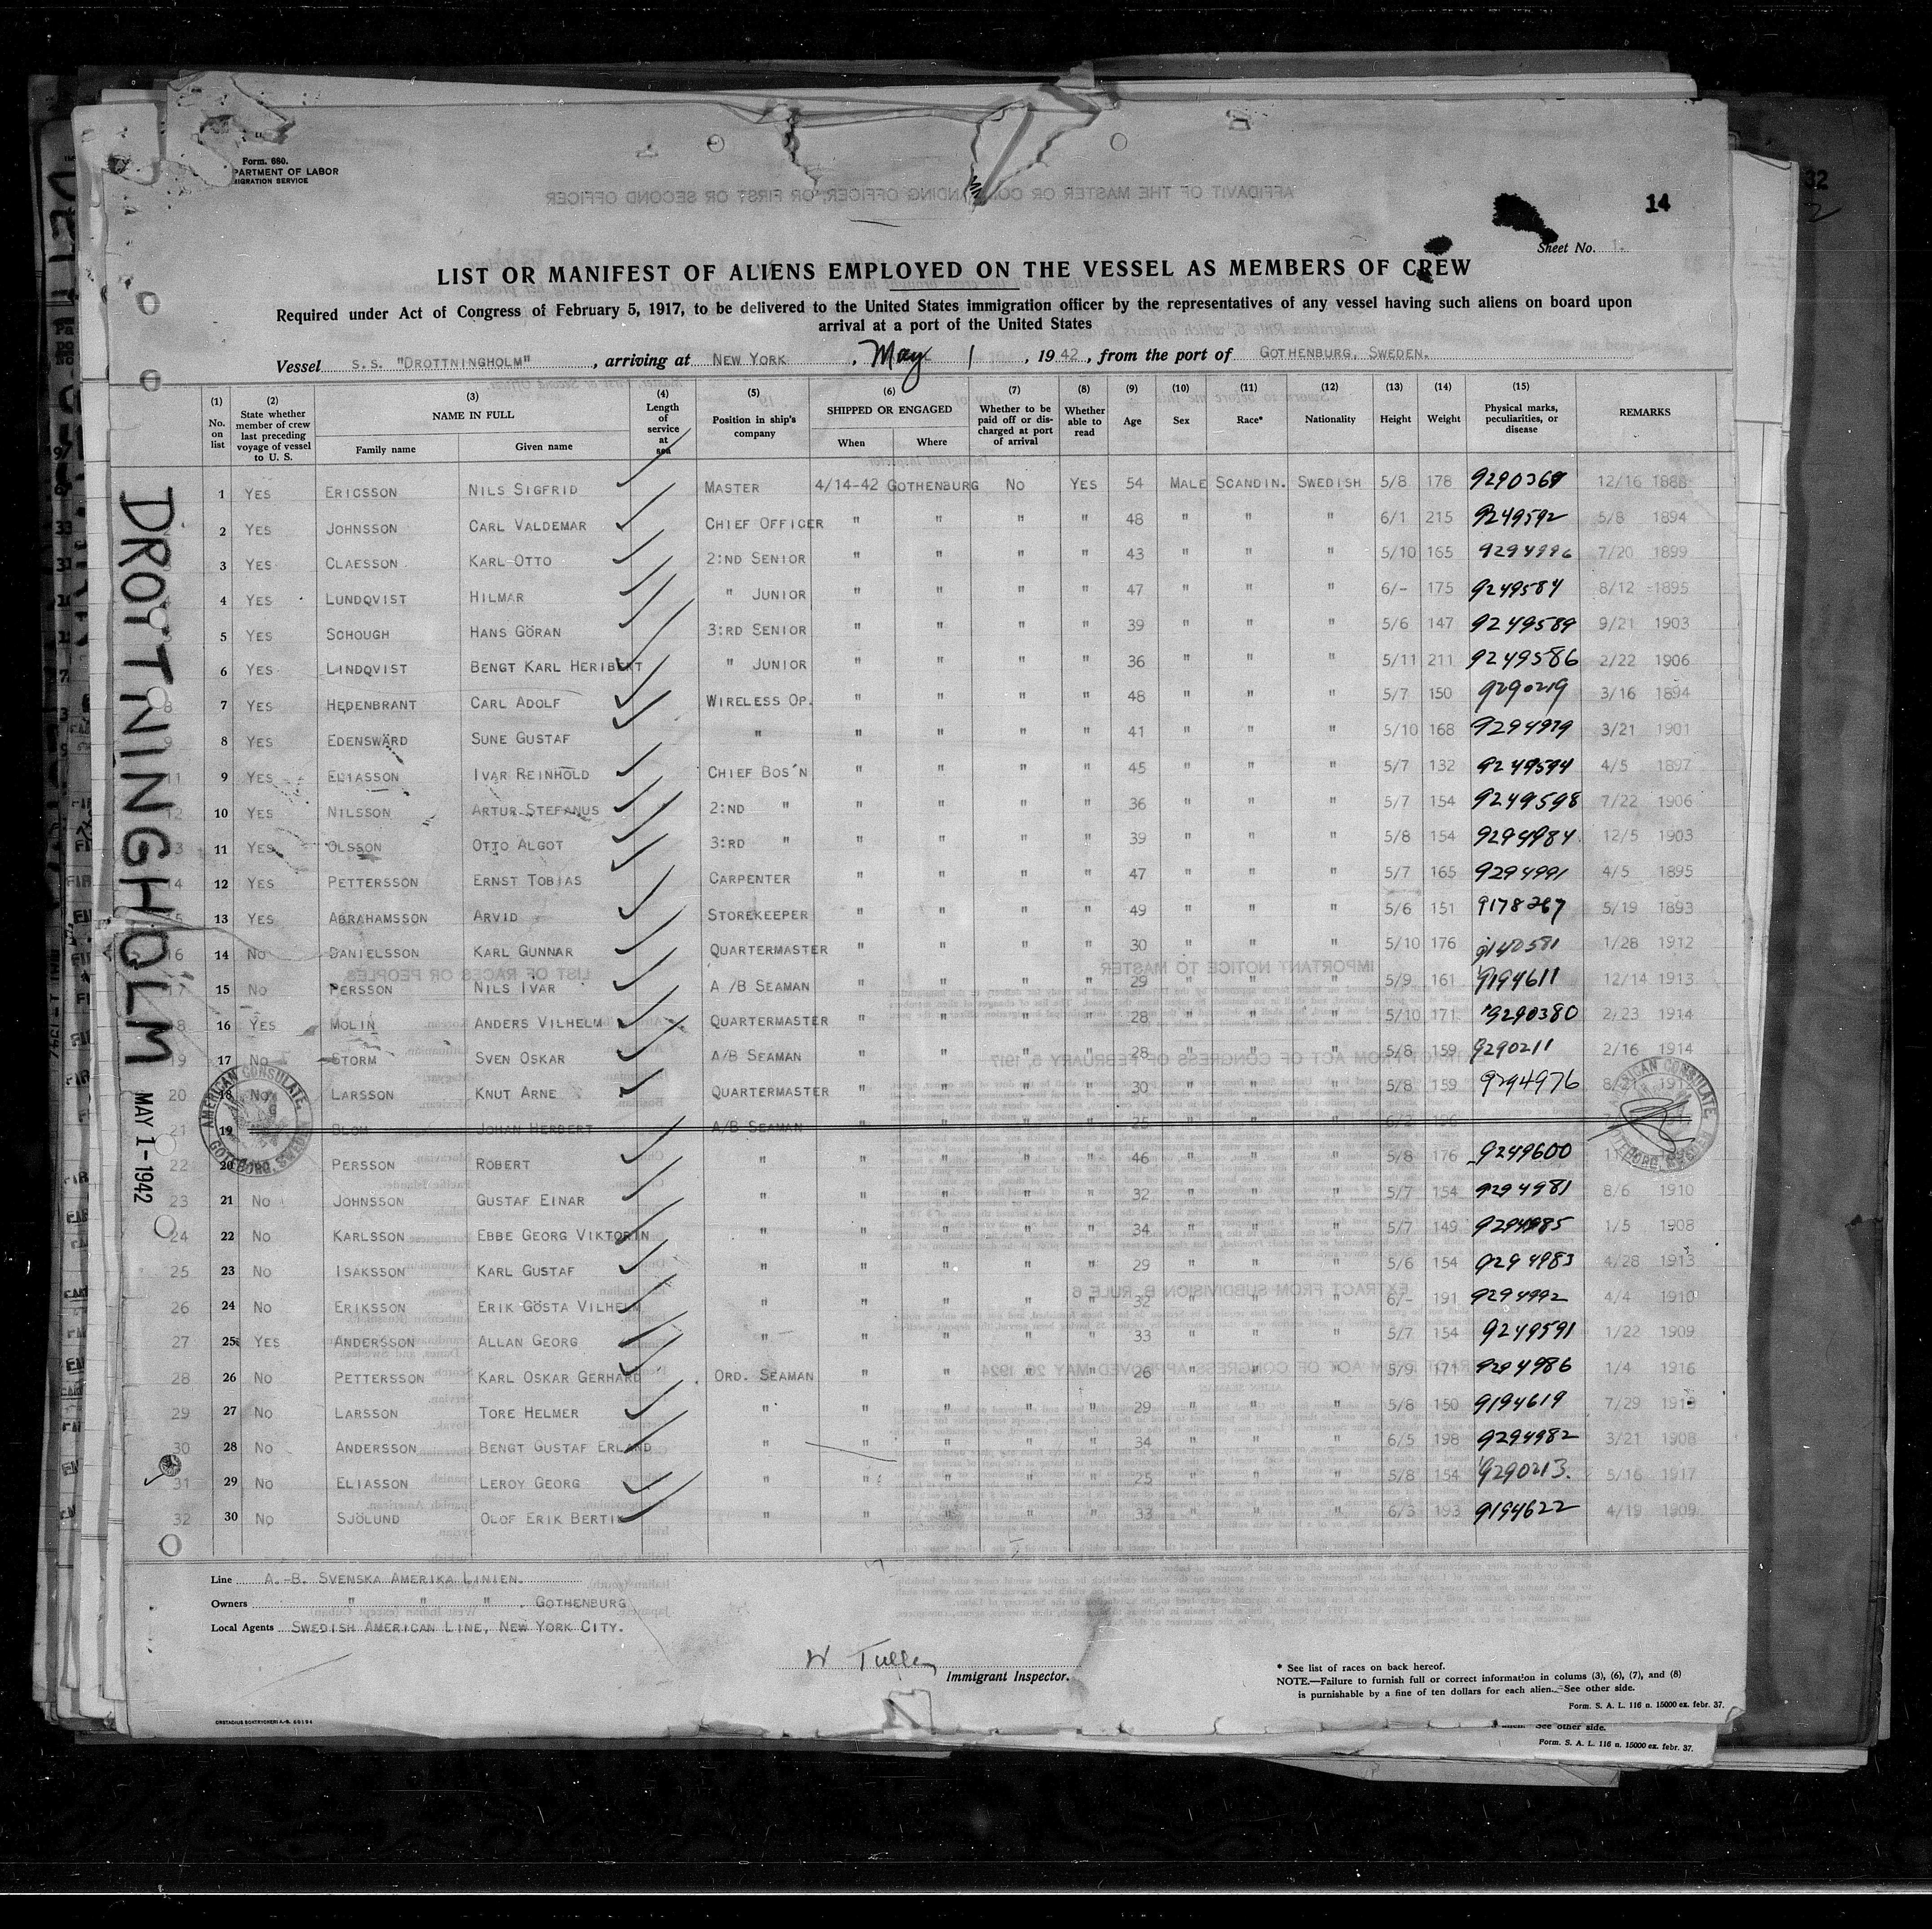 Form. 680.
PARTMENT OF LABOR
MIGRATION SERVICE
14
Sheet No. 1.
LIST OR MANIFEST OF ALIENS EMPLOYED ON THE VESSEL AS MEMBERS OF CREW
Required under Act of Congress of February 5, 1917, to be delivered to the United States immigration officer by the representatives of any vessel having such aliens on board upon
arrival at a port of the United States
Vessel S.S. "DROTTNINGHOLM", arriving at NEW YORK, May 1, 1942, from the port of GOTHENBURG, SWEDEN.
(1) No. on list (2) State whether member of crew last preceding voyage of vessel to U. S. (3) NAME IN FULL Family name Given name (4) Length of service at sea (5) Position in ship's company (6) SHIPPED OR ENGAGED When Where (7) Whether to be paid off or discharged at port of arrival (8) Whether able to read (9) Age (10) Sex (11) Race* (12) Nationality (13) Height (14) Weight (15) Physical marks, peculiarities, or disease REMARKS
1 YES ERICSSON NILS SIGFRID MASTER 4/14-42 GOTHENBURG NO YES 54 MALE SCANDIN. SWEDISH 5/8 178 12/16
2 YES JOHNSSON CARL VALDEMAR CHIEF OFFICER " " " " 48 " " " 6/1 215 9249592 5/8 1894
3 YES CLAESSON KARL OTTO 2:ND SENIOR " " " " 43 " " " 5/10 165 9294996 7/20 1899
4 YES LUNDQVIST HILMAR " JUNIOR " " " " 47 " " " 6/- 175 9249584 8/12 1895
5 YES SCHOUGH HANS GÖRAN 3:RD SENIOR " " " " 39 " " " 5/6 147 9249589 9/21 1903
6 YES LINDQVIST BENGT KARL HERIBERT " JUNIOR " " " " 36 " " " 5/11 211 9249586 2/22 1906
7 YES HEDENBRANT CARL ADOLF WIRELESS OP. " " " " 48 " " " 5/7 150 9290219 3/16 1894
8 YES EDENSWÄRD SUNE GUSTAF " " " " " 41 " " " 5/10 168 9294979 3/21 1901
9 YES ELIASSON IVAR REINHOLD CHIEF BOS'N " " " " 45 " " " 5/7 132 9249594 4/5 1897
10 YES NILSSON ARTUR STEFANUS 2:ND " " " " " 36 " " " 5/7 154 9249598 7/22 1906
11 YES OLSSON OTTO ALGOT 3:RD " " " " " 39 " " " 5/8 154 9294984 12/5 1903
12 YES PETTERSSON ERNST TOBIAS CARPENTER " " " " 47 " " " 5/7 165 9294991 4/5 1895
13 YES ABRAHAMSSON ARVID STOREKEEPER " " " " 49 " " " 5/6 151 9178267 5/19 1893
14 NO DANIELSSON KARL GUNNAR QUARTERMASTER " " " " 30 " " " 5/10 176 9140581 1/28 1912
15 NO PERSSON NILS IVAR A/B SEAMAN " " " " 29 " " " 5/9 161 9194611 12/14 1913
16 YES MOLIN ANDERS VILHELM QUARTERMASTER " " " " 28 " " " 5/10 171 9290380 2/23 1914
17 NO STORM SVEN OSKAR A/B SEAMAN " " " " 28 " " " 5/8 159 9290211 2/16 1914
18 NO LARSSON KNUT ARNE QUARTERMASTER " " " " 30 " " " 5/8 159 9294976
19 BLOM JOHAN HERBERT A/B SEAMAN " " " " 25 " " " 6/2
20 PERSSON ROBERT " " " " " 46 " " " 5/8 176 9249600
21 NO JOHNSSON GUSTAF EINAR " " " " " 32 " " " 5/7 154 9294981 8/6 1910
22 NO KARLSSON EBBE GEORG VIKTORIN " " " " " 34 " " " 5/7 149 9294985 1/5 1908
23 NO ISAKSSON KARL GUSTAF " " " " " 29 " " " 5/6 154 9294983 4/28 1913
24 NO ERIKSSON ERIK GÖSTA VILHELM " " " " " 32 " " " 6/- 191 9294992 4/4 1910
25 YES ANDERSSON ALLAN GEORG " " " " " 33 " " " 5/7 154 9249591 1/22 1909
26 NO PETTERSSON KARL OSKAR GERHARD ORD. SEAMAN " " " " 26 " " " 5/9 171 9294986 1/4 1916
27 NO LARSSON TORE HELMER " " " " " 29 " " " 5/8 150 9194619 7/29
28 NO ANDERSSON BENGT GUSTAF ERLAND " " " " " 34 " " " 6/5 198 9294982 3/21 1908
29 NO ELIASSON LEROY GEORG " " " " " 25 " " " 5/8 154 9290213 5/16 1917
30 NO SJÖLUND OLOF ERIK BERTIL " " " " " 33 " " " 6/3 193 9194622 4/19 1909
DROTTNINGHOLM
MAY 1-1942
AMERICAN CONSULATE, GOTEBORG, SWEDEN
AMERICAN CONSULATE GOTEBORG, SWEDEN
Line A.-B. SVENSKA AMERIKA LINIEN.
Owners " " " . GOTHENBURG
Local Agents SWEDISH AMERICAN LINE, NEW YORK CITY.
Immigrant Inspector.
* See list of races on back hereof.
NOTE.—Failure to furnish full or correct information in colums (3), (6), (7), and (8)
is punishable by a fine of ten dollars for each alien. See other side.
Form. S. A. L. 116 n. 15000 ex. febr. 37.
See other side.
Form. S. A. L. 116 n. 15000 ex. febr. 37.